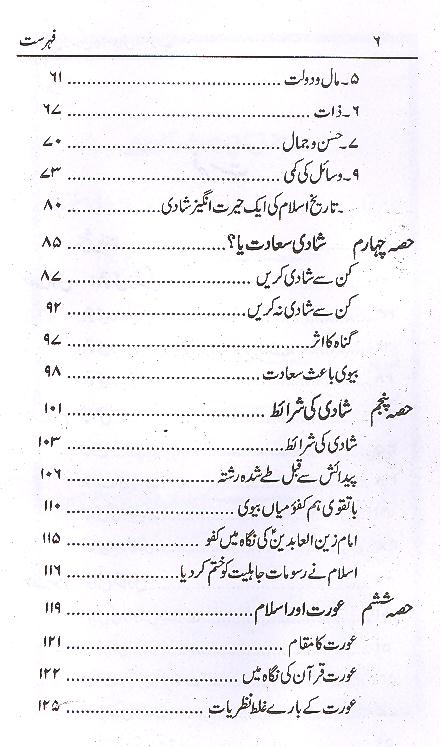 ۶ فہرست
۵۔ مال و دولت ........................ ۶۱
۶۔ ذات ........................ ۶۷
۷۔ حسن و جمال ........................ ۷۰
۹۔ وسائل کی کمی ........................ ۷۳
۔ تاریخ اسلام کی ایک حیرت انگیز شادی ........................ ۸۰
حصہ چہارم شادی سعادت یا؟ ........................ ۸۵
کن سے شادی کریں ........................ ۸۷
کن سے شادی نہ کریں ........................ ۹۲
گناہ کا اثر ........................ ۹۷
بیوی باعث سعادت ........................ ۹۸
حصہ پنجم شادی کی شرائط ........................ ۱۰۱
شادی کی شرائط ........................ ۱۰۳
پیدائش سے قبل طے شدہ رشتہ ........................ ۱۰۶
با تقویٰ ہم کفو میاں بیوی ........................ ۱۱۰
امام زین العابدینؑ کی نگاہ میں کفو ........................ ۱۱۵
اسلام نے رسومات جاہلیت کو ختم کر دیا ........................ ۱۱۶
حصہ ششم عورت اور اسلام ........................ ۱۱۹
عورت کا مقام ........................ ۱۲۱
عورت قرآن کی نگاہ میں ........................ ۱۲۲
عورت کے بارے غلط نظریات ........................ ۱۲۵